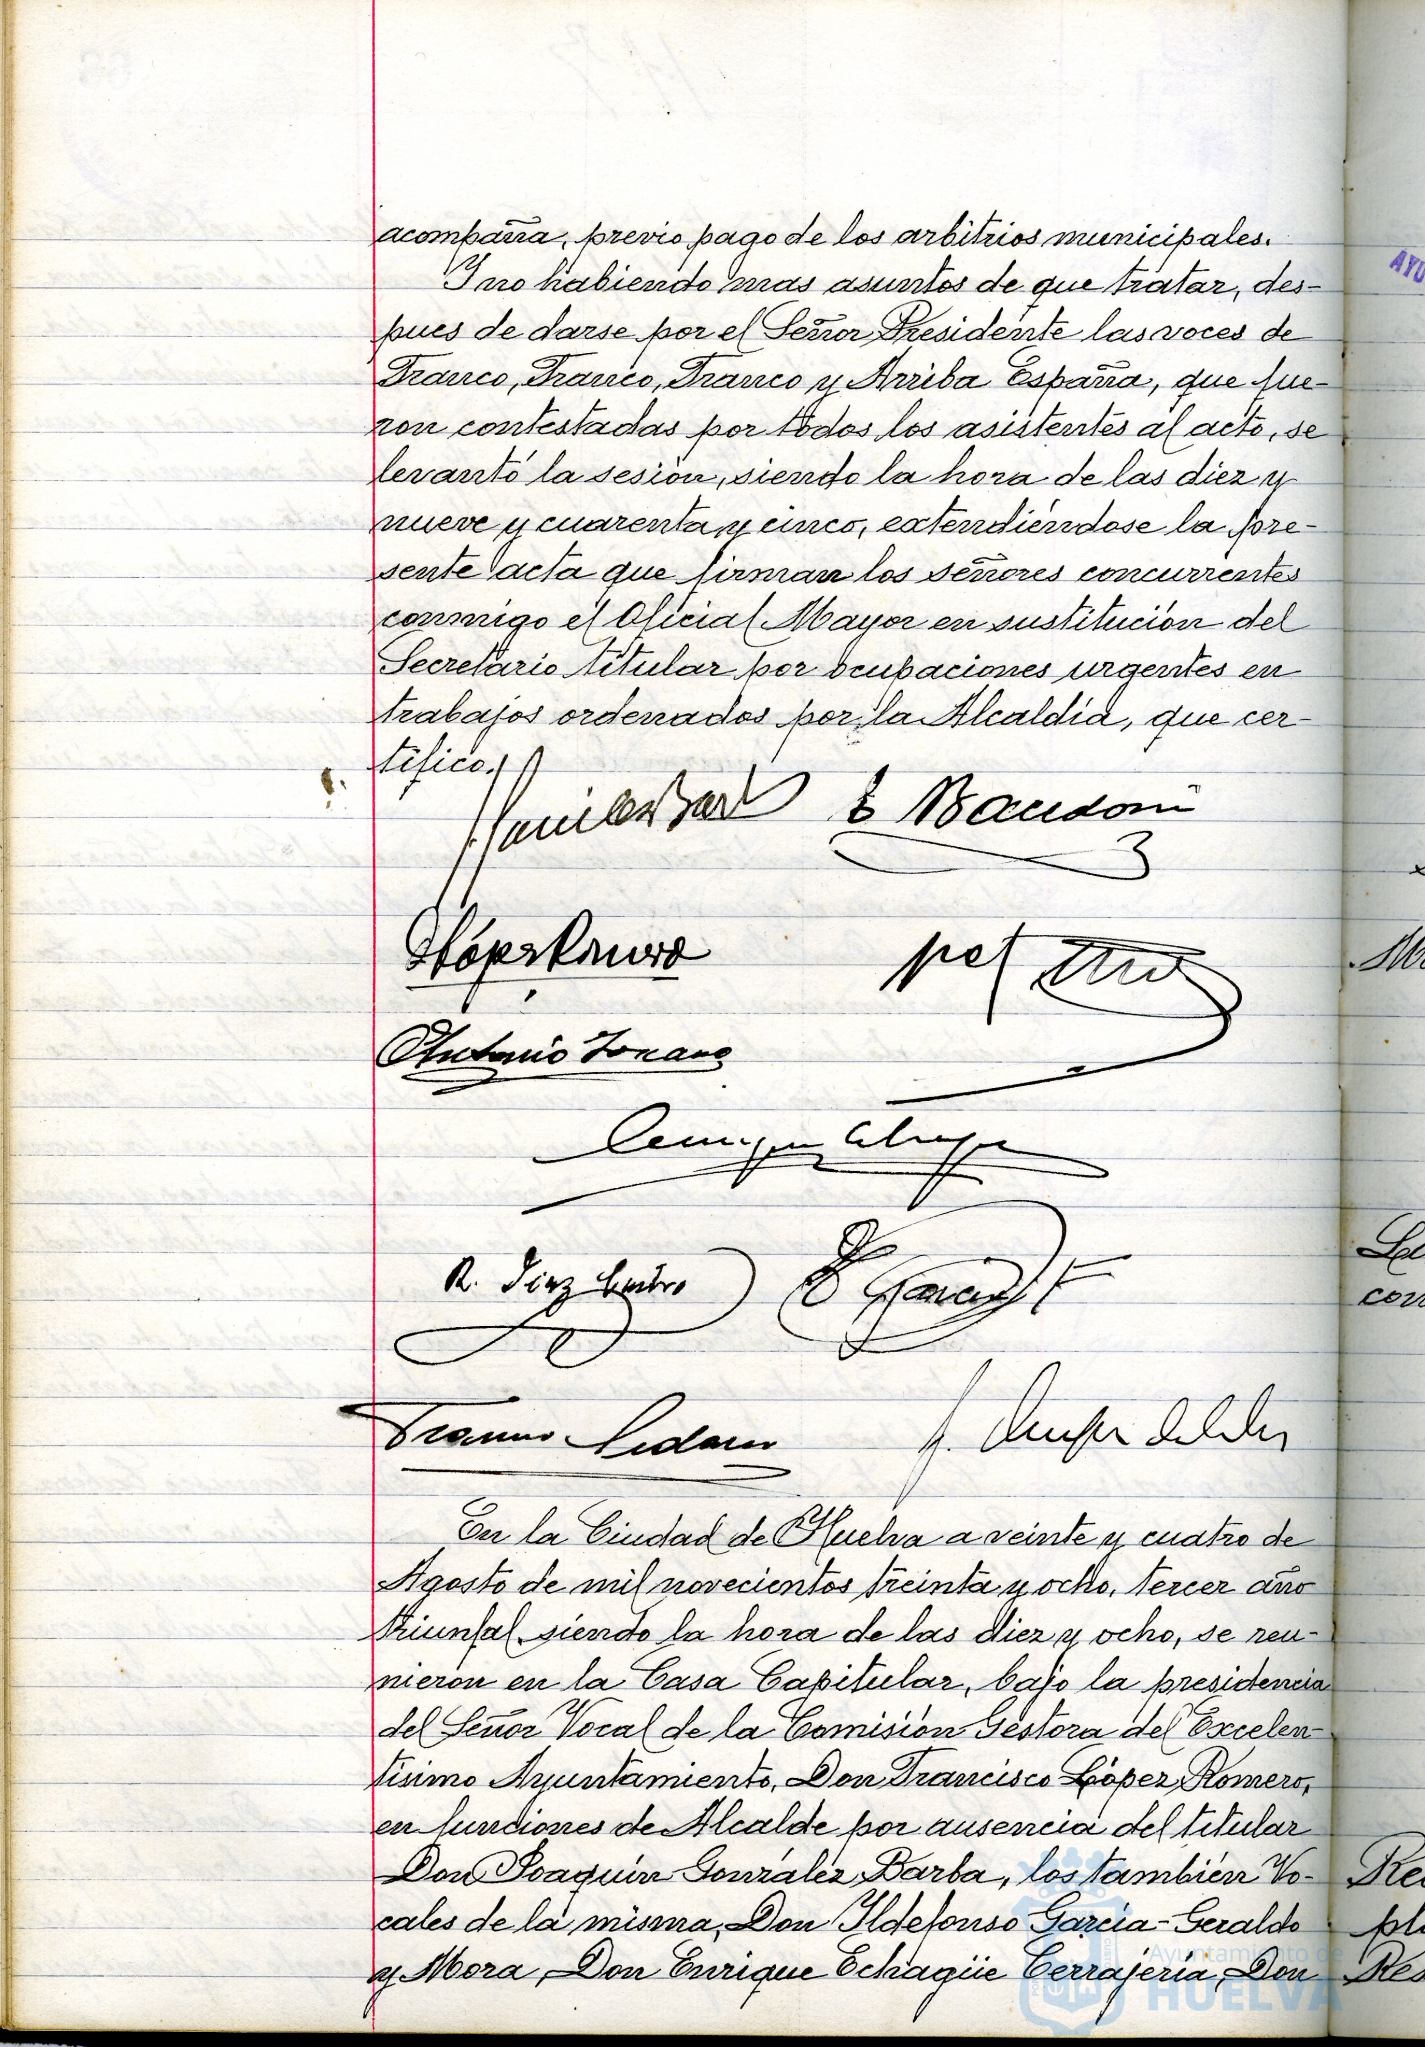 acompaña, previo pago de los arbitrios municipales.
Y no habiendo mas asuntos de que tratar, des-
pues de darse por el Señor Presidente las voces de
Franco, Franco, Franco y Arriba España, que fue-
ron contestadas por todos los asistentes al acto, se
levantó la sesión, siendo la hora de las diez y
nueve y cuarenta y cinco, extendiéndose la pre-
sente acta que firman los señores concurrentes
conmigo el Oficial Mayor en sustitución del
Secretario titular por ocupaciones urgentes en
trabajos ordenados por la Alcaldía, que cer-
tifico.
Antonio
R. Diaz
En la Ciudad de Huelva a veinte y cuatro de
Agosto de mil novecientos treinta y ocho, tercer año
triunfal, siendo la hora de las diez y ocho, se reu-
nieron en la Casa Capitular, bajo la presidencia
del Señor Vocal de la Comisión Gestora del Excelen-
tísimo Ayuntamiento, Don Francisco López Romero,
en funciones de Alcalde por ausencia del titular
Don Joaquín González Barba, los también Vo-
cales de la misma, Don Ildefonso García-Geraldo
y Mora, Don Enrique Echagüe Cerrajería, Don
Ayuntamiento de
HUELVA